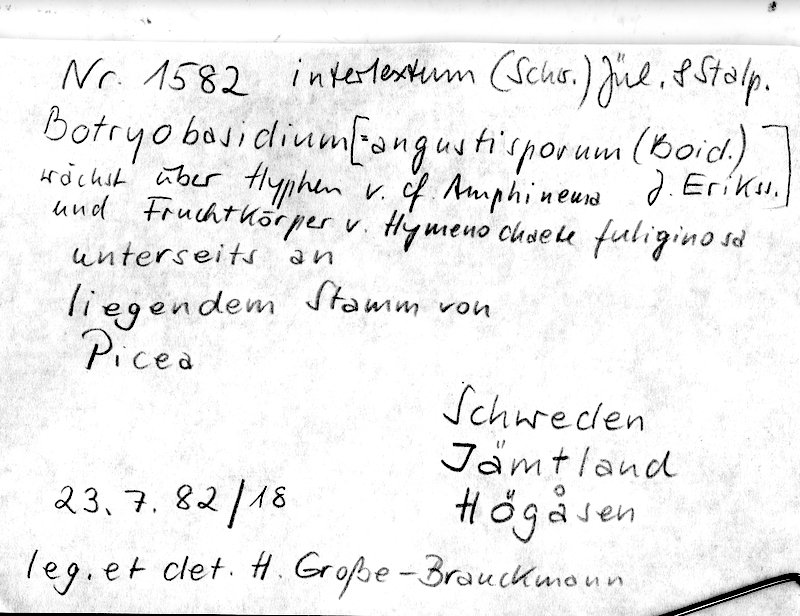 Nr. 1582 intertextum (Schw.) Jül. & Stalp.
Botryobasidium [= angustisporum (Boid.)
wächst über Hyphen v. cf. Amphinema J. Erikss.]
und Fruchtkörper v. Hymenochaete fuliginosa
unterseits an
liegendem Stamm von
Picea
Schweden
Jämtland
Högåsen
23. 7. 82/18
leg. et det. H. Große-Brauckmann